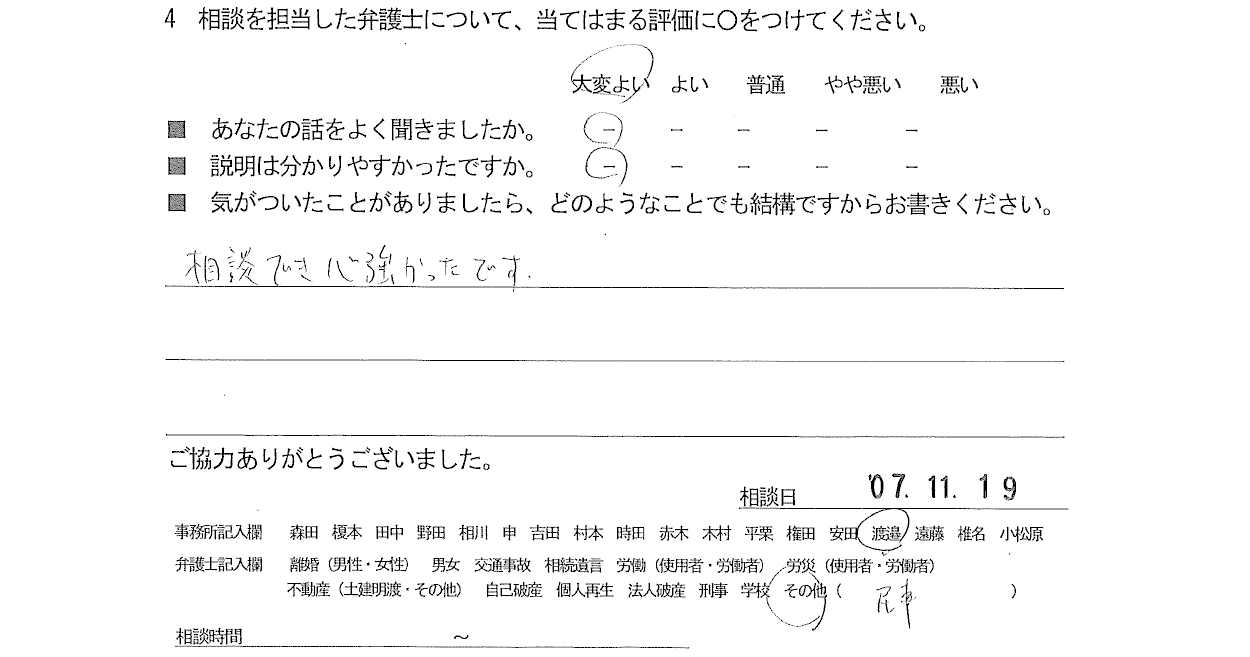 4 相談を担当した弁護士について、当てはまる評価に〇をつけてください。
大変よい よい 普通 やや悪い 悪い
■ あなたの話をよく聞きましたか。 － － － － －
■ 説明は分かりやすかったですか。 － － － － －
■ 気がついたことがありましたら、どのようなことでも結構ですからお書きください。
相談でき心強かったです.
ご協力ありがとうございました。
相談日 '07.11.19
事務所記入欄 森田 榎本 田中 野田 相川 申 吉田 村本 時田 赤木 木村 平栗 権田 安田 渡邉 遠藤 椎名 小松原
弁護士記入欄 離婚（男性・女性） 男女 交通事故 相続遺言 労働（使用者・労働者） 労災（使用者・労働者）
不動産（土建明渡・その他） 自己破産 個人再生 法人破産 刑事 学校 その他（ 民事 ）
相談時間 ～